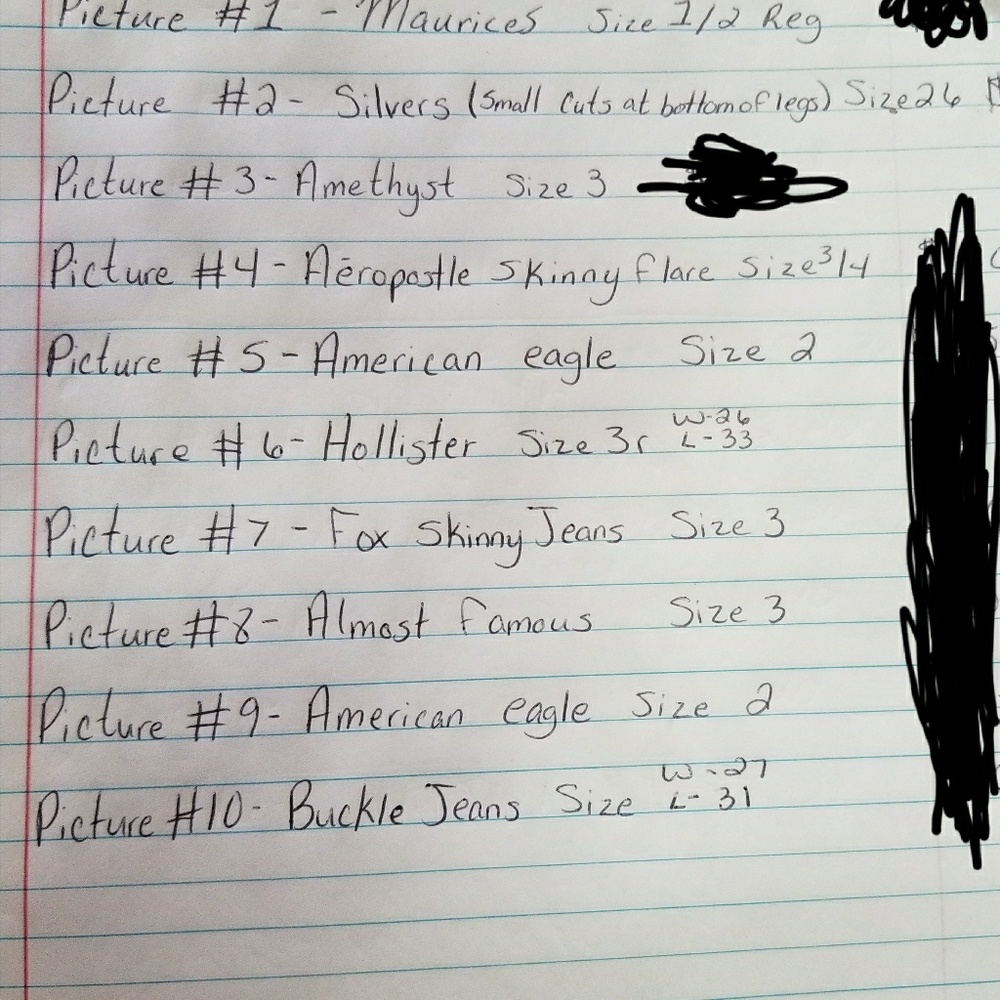 Picture #1 - Maurices Size 1/2 Reg
Picture #2- Silvers (Small Cuts at bottom of legs) Size 26 $
Picture #3- Amethyst Size 3
Picture #4- Aēropostle Skinny flare Size 3/4
Picture #5-American eagle Size 2
Picture #6- Hollister Size 3r W-26 L-33
Picture #7 - Fox Skinny Jeans Size 3
Picture #8- Almost famous Size 3
Picture #9- American eagle Size 2
Picture #10- Buckle Jeans Size W-27 L-31